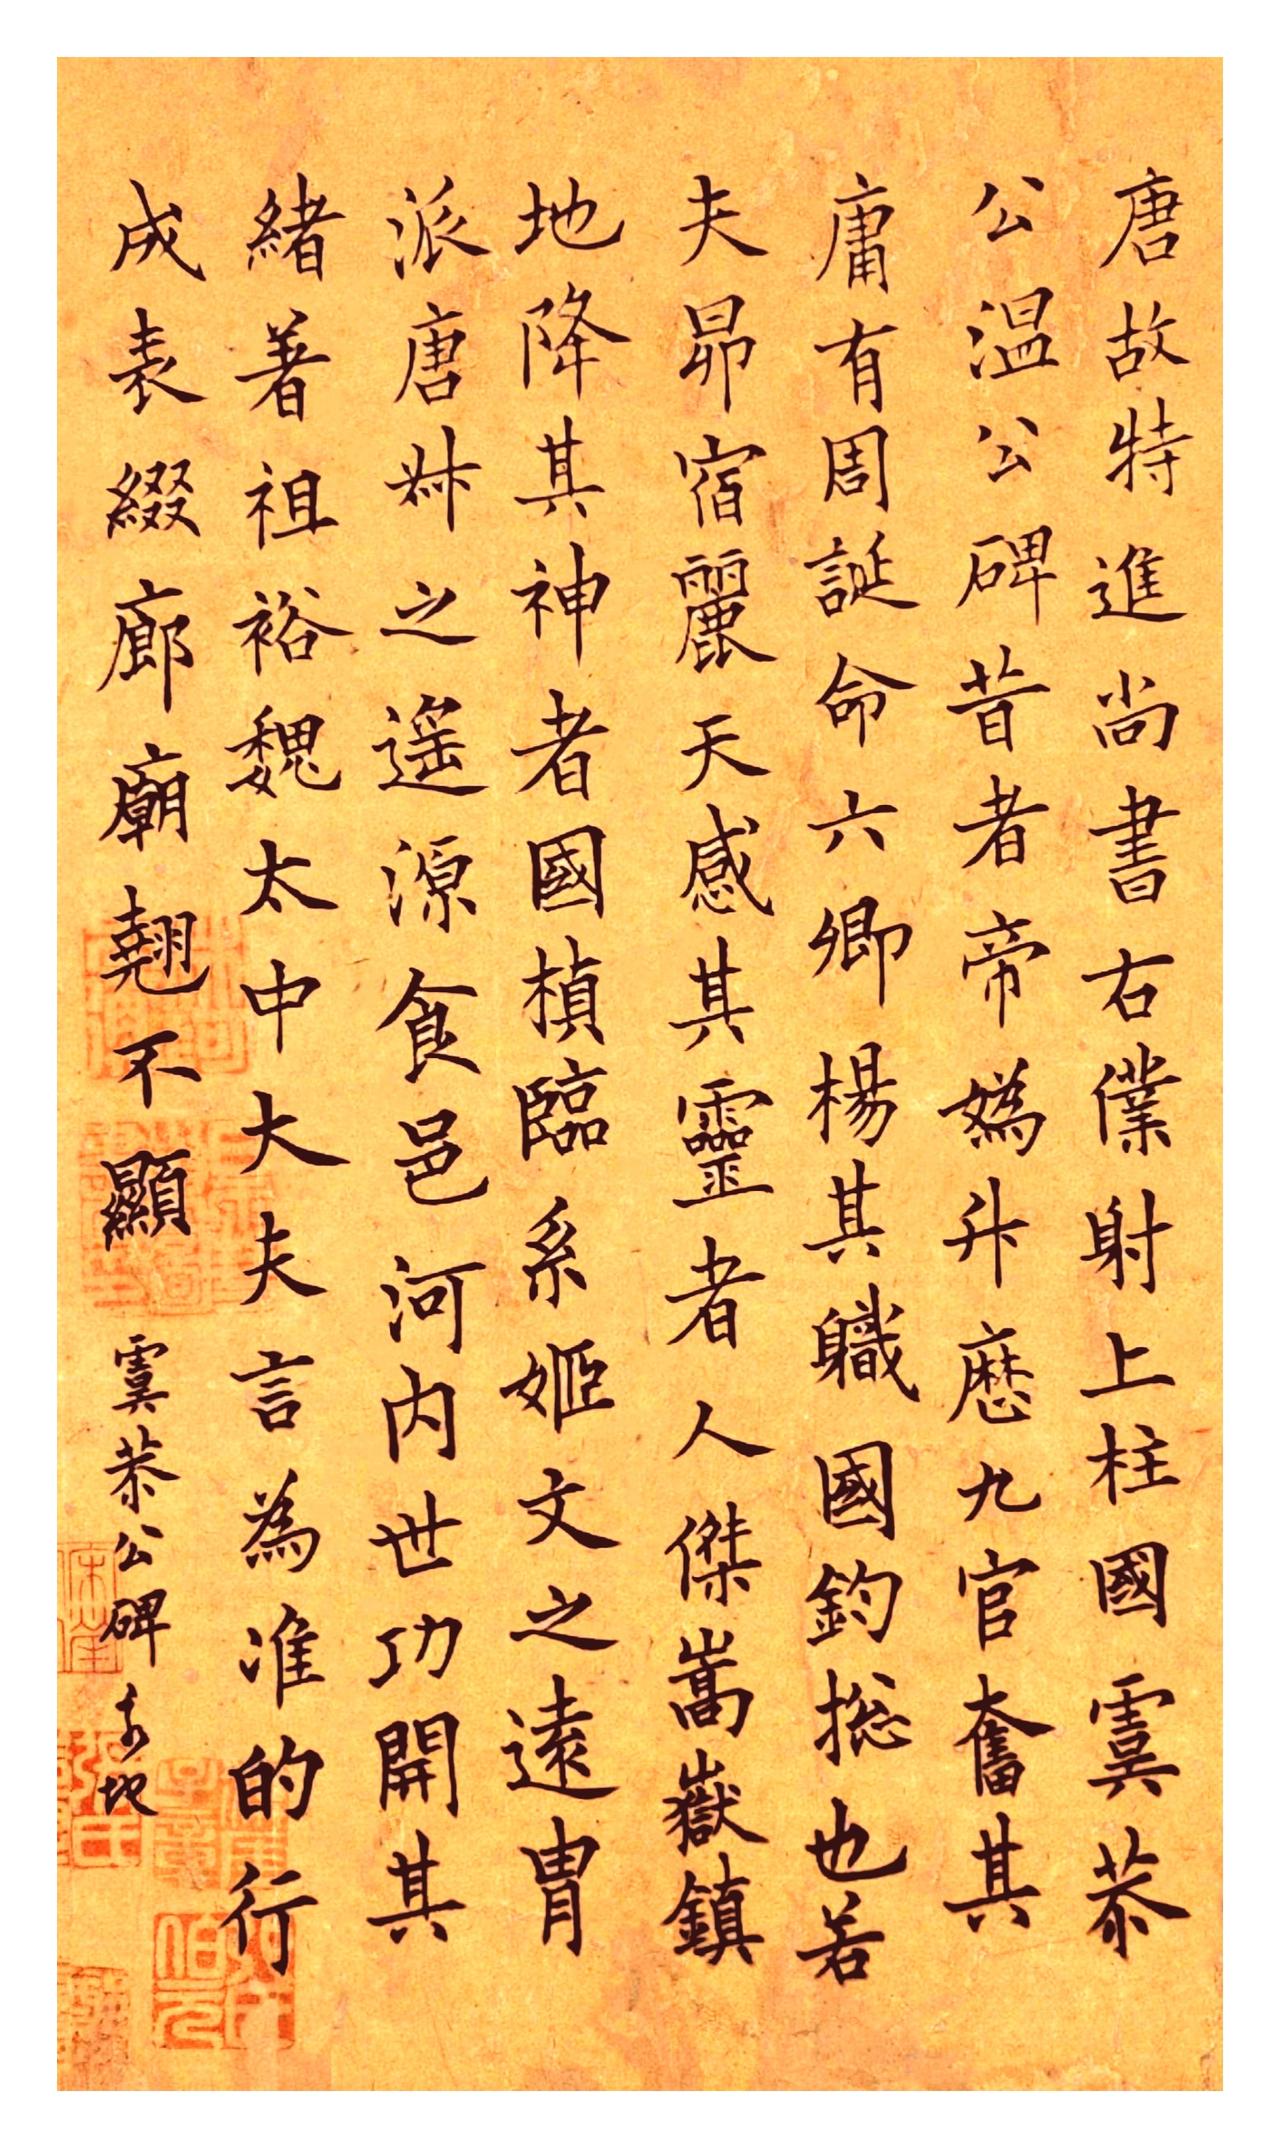 唐故特進尚書右僕射上柱國虞恭
公温公碑昔者帝媯升歷九官奮其
庸有周誕命六卿楊其職國鈞揔也若
夫昴宿麗天感其靈者人傑嵩嶽鎮
地降其神者國楨臨系姬文之遠胄
派唐叔之遥源食邑河内世功開其
緒著祖裕魏太中大夫言為准的行
成表綴廊廟翹不顯
虞恭公碑